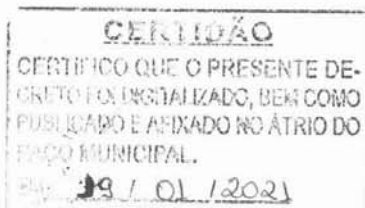 CERTIDÃO
CERTIFICO QUE O PRESENTE DE-
CRETO FOI DIGITALIZADO, BEM COMO
PUBLICADO E AFIXADO NO ÁTRIO DO
PAÇO MUNICIPAL.
19 / 01 / 2021